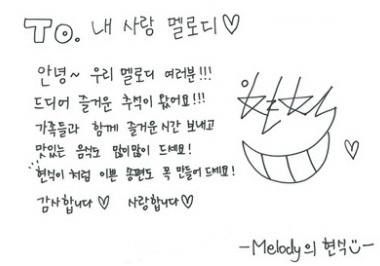 To. 내 사랑 멜로디♡
안녕~ 우리 멜로디 여러분!!!
드디어 즐거운 추석이 왔어요!!!
가족들과 함께 즐거운시간 보내고
맛있는 음식도 많이많이 드세요!
현식이 처럼 이쁜 송편도 꼭 만들어 드세요!
감사합니다♡ 사랑합니다♡
-Melody의 현식-